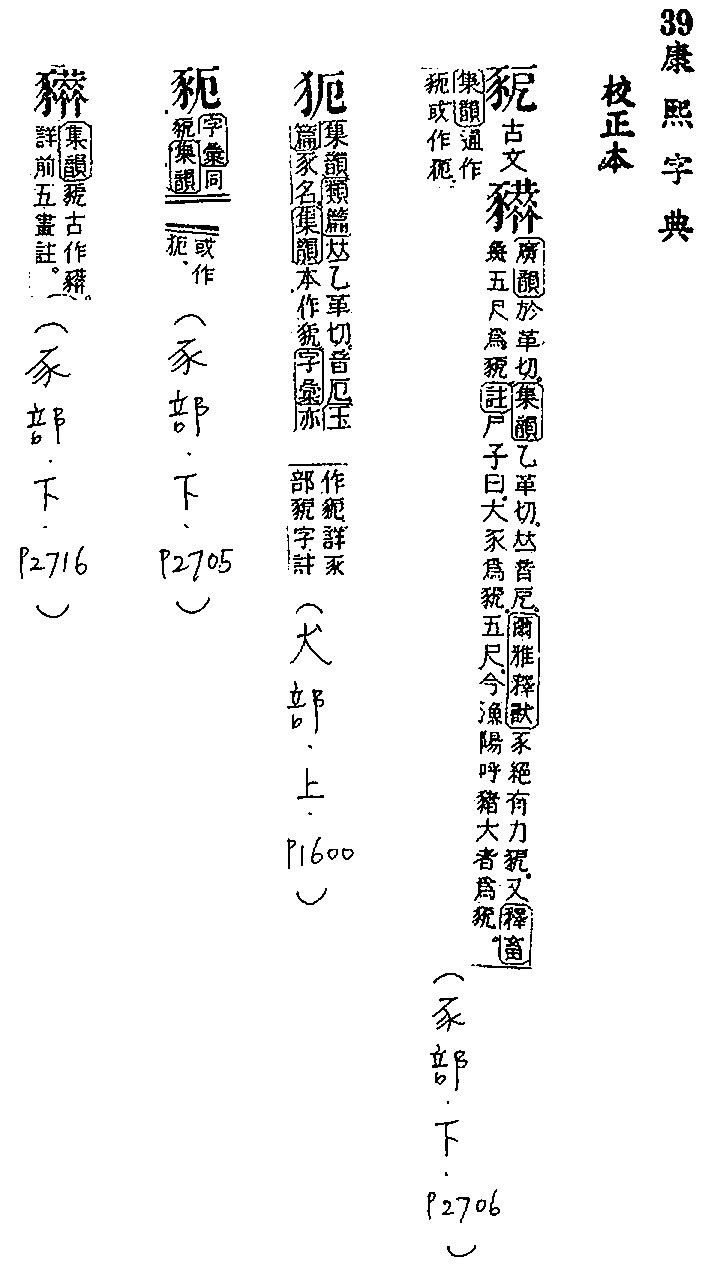 39康熙字典
校正本
豟 古文
廣韻於革切。集韻乙革切。𠀤音厄。爾雅釋獸豕絕有力豟。又釋畜
彘五尺爲豟。註尸子曰。大豕爲豟。五尺。今漁陽呼豬大者爲豟。
集韻通作
或作
(豕部.下.P2706)
集韻類篇𠀤乙革切。音厄。玉
篇豕名。集韻本作豟。字彙亦
作豟詳豕
部豟字註
(犬部.上.P1600)
字彙同
豟集韻
或作
(豕部.下.P2705)
集韻豟古作
詳前五畫註。
(豕部.下.P2716)